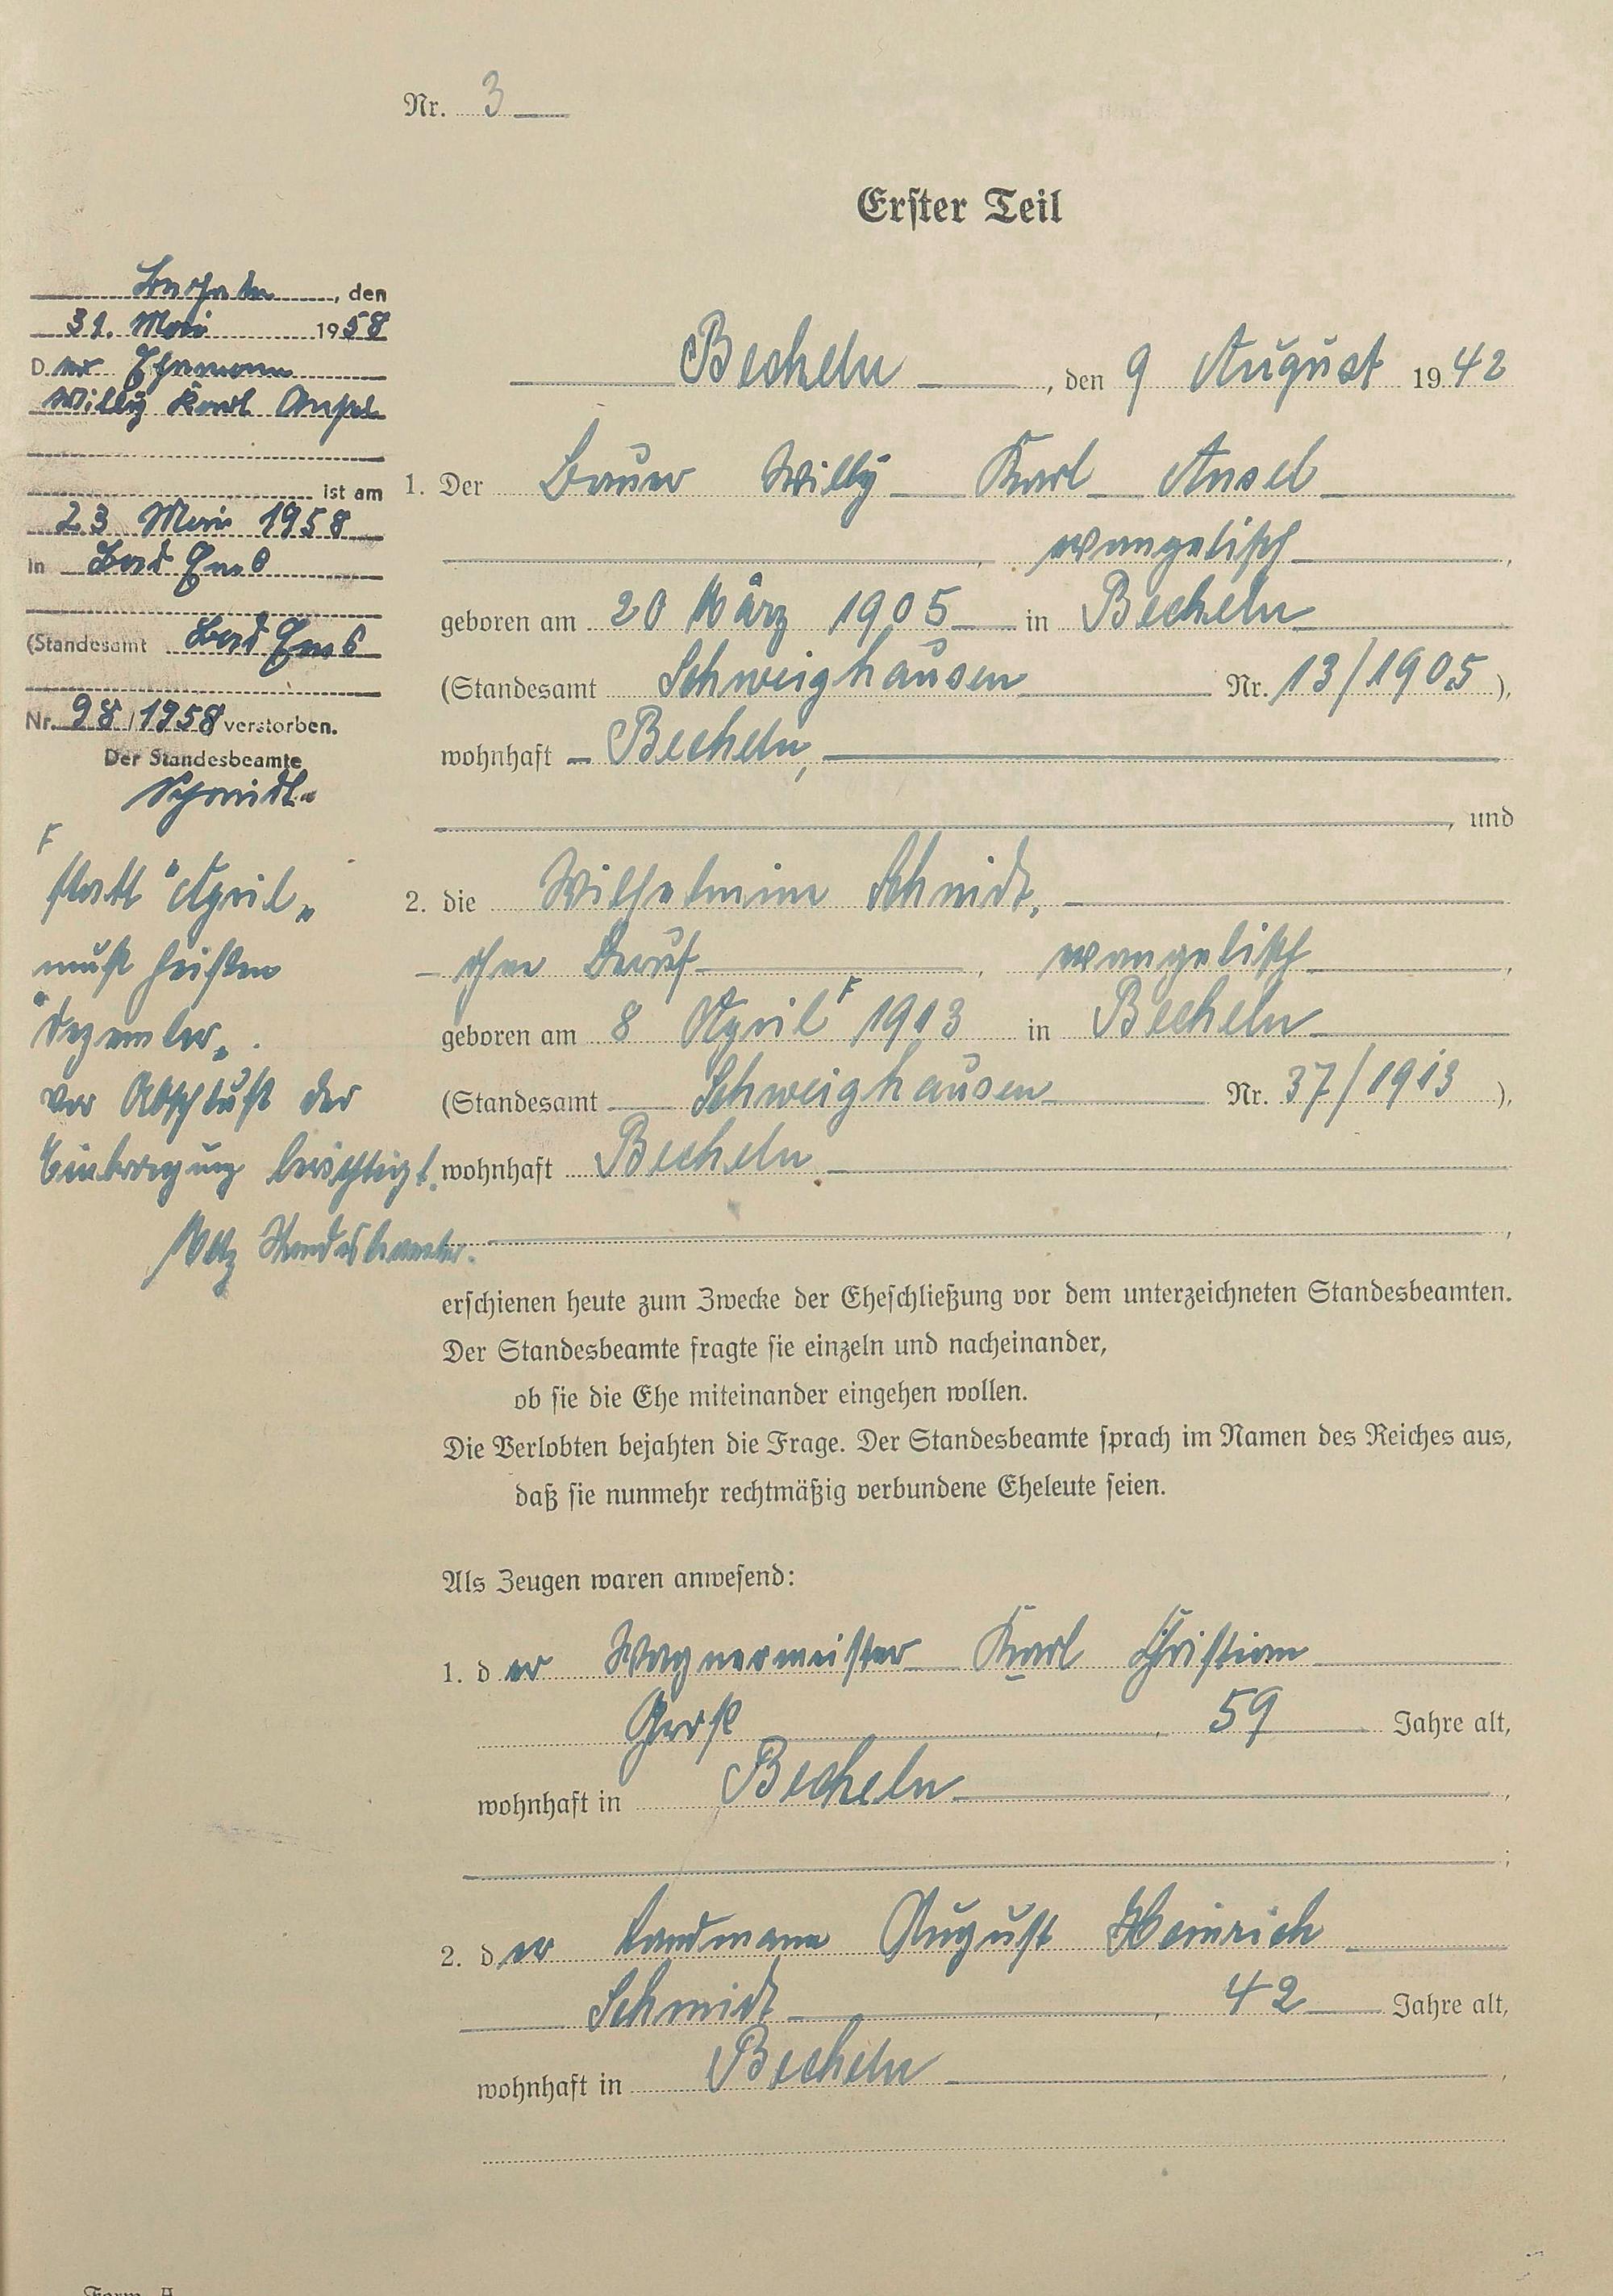 Nr. 3
Erster Teil
Becheln, den
31. Mai 1958
Der Ehemann
Willy Karl Ansel
ist am
23 Mai 1958
in Bad Ems
(Standesamt Bad Ems
Nr. 98/1958 verstorben.
Der Standesbeamte
Schmidt
F
statt "April"
muß heißen
"Dezember".
vor Abschluß der
Eintragung berichtigt.
Standesbeamter.
Becheln, den 9 August 1942
1. Der Bauer Willy Karl Ansel
, evangelisch,
geboren am 20 März 1905 in Becheln
(Standesamt Schweighausen Nr. 13/1905),
wohnhaft Becheln,
, und
2. die Wilhelmine Schmidt,
ohne Beruf, evangelisch,
geboren am 8 April F 1913 in Becheln
(Standesamt Schweighausen Nr. 37/1913),
wohnhaft Becheln
,
erschienen heute zum Zwecke der Eheschließung vor dem unterzeichneten Standesbeamten.
Der Standesbeamte fragte sie einzeln und nacheinander,
ob sie die Ehe miteinander eingehen wollen.
Die Verlobten bejahten die Frage. Der Standesbeamte sprach im Namen des Reiches aus,
daß sie nunmehr rechtmäßig verbundene Eheleute seien.
Als Zeugen waren anwesend:
1. der Wagnermeister Karl Christian
Groß, 59 Jahre alt,
wohnhaft in Becheln,
;
2. der Landmann August Heinrich
Schmidt, 42 Jahre alt,
wohnhaft in Becheln,
Form. A